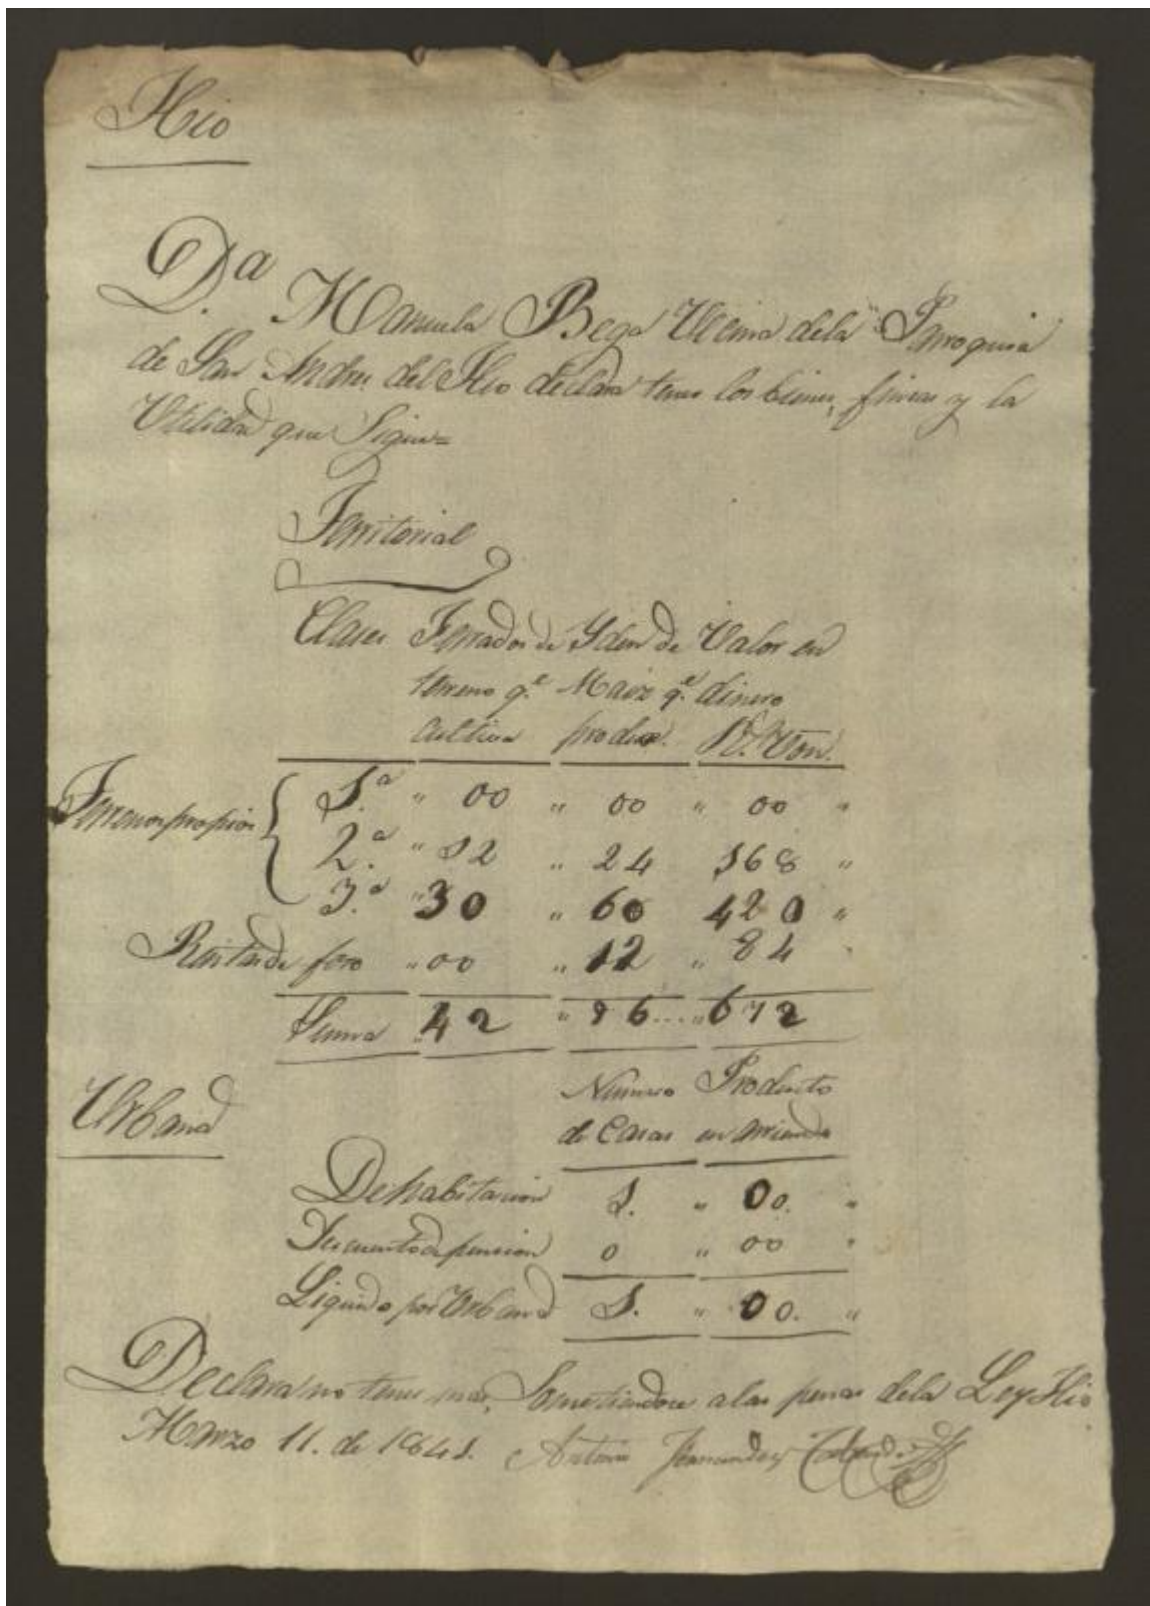 Hio
D.ª Manuela Bega Vecina dela Parroquia
de San Andres del Hio declara tener los bienes, fincas y la
Utilidad que Sigue=
Territorial
Clases Ferrados de Yden de Valor en
terreno q.e Maiz q.e dinero
Cultiva produce. R.s Von.
Terrenos propios { 1.ª " 00 " 00 " 00 "
2.ª " 12 " 24 168 "
3.ª " 30 " 60 420 "
foro " 00 " 12 " 84
Suma 42 " 96 " 672
Urbana
Numero Producto
de Casas en arriendo
De habitacion 1. " 00. "
Descuento de pension 0 " 00 "
Liquido por Urbana 1. " 00. "
Declara no tener mas, Sometiendose a las penas dela Ley Hio
Marzo 11. de 1841. Antonio Fernandez